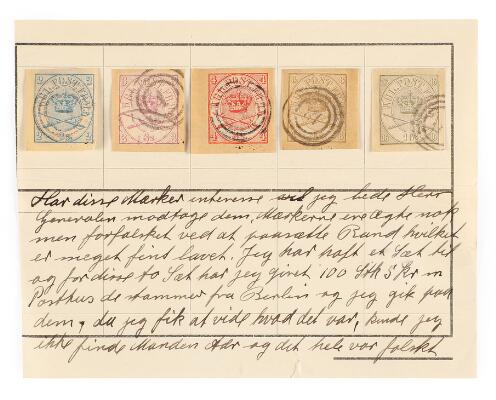 KGL POST FRM
Har disse Mærker interesse vil jeg bede Herr
Generalen modtage dem, Mærkerne ere ægte nok
men forfalsket ved at paasætte Rand hvilket
er meget fint lavet. Jeg har haft et Sæt til
og for disse to Sæt har jeg givet 100 Stk 5 Kr m
Posthus de stammer fra Berlin og jeg gik paa
dem, da jeg fik at vide hvad det var, kunde jeg
ikke finde Manden Adr og det hele var falskt